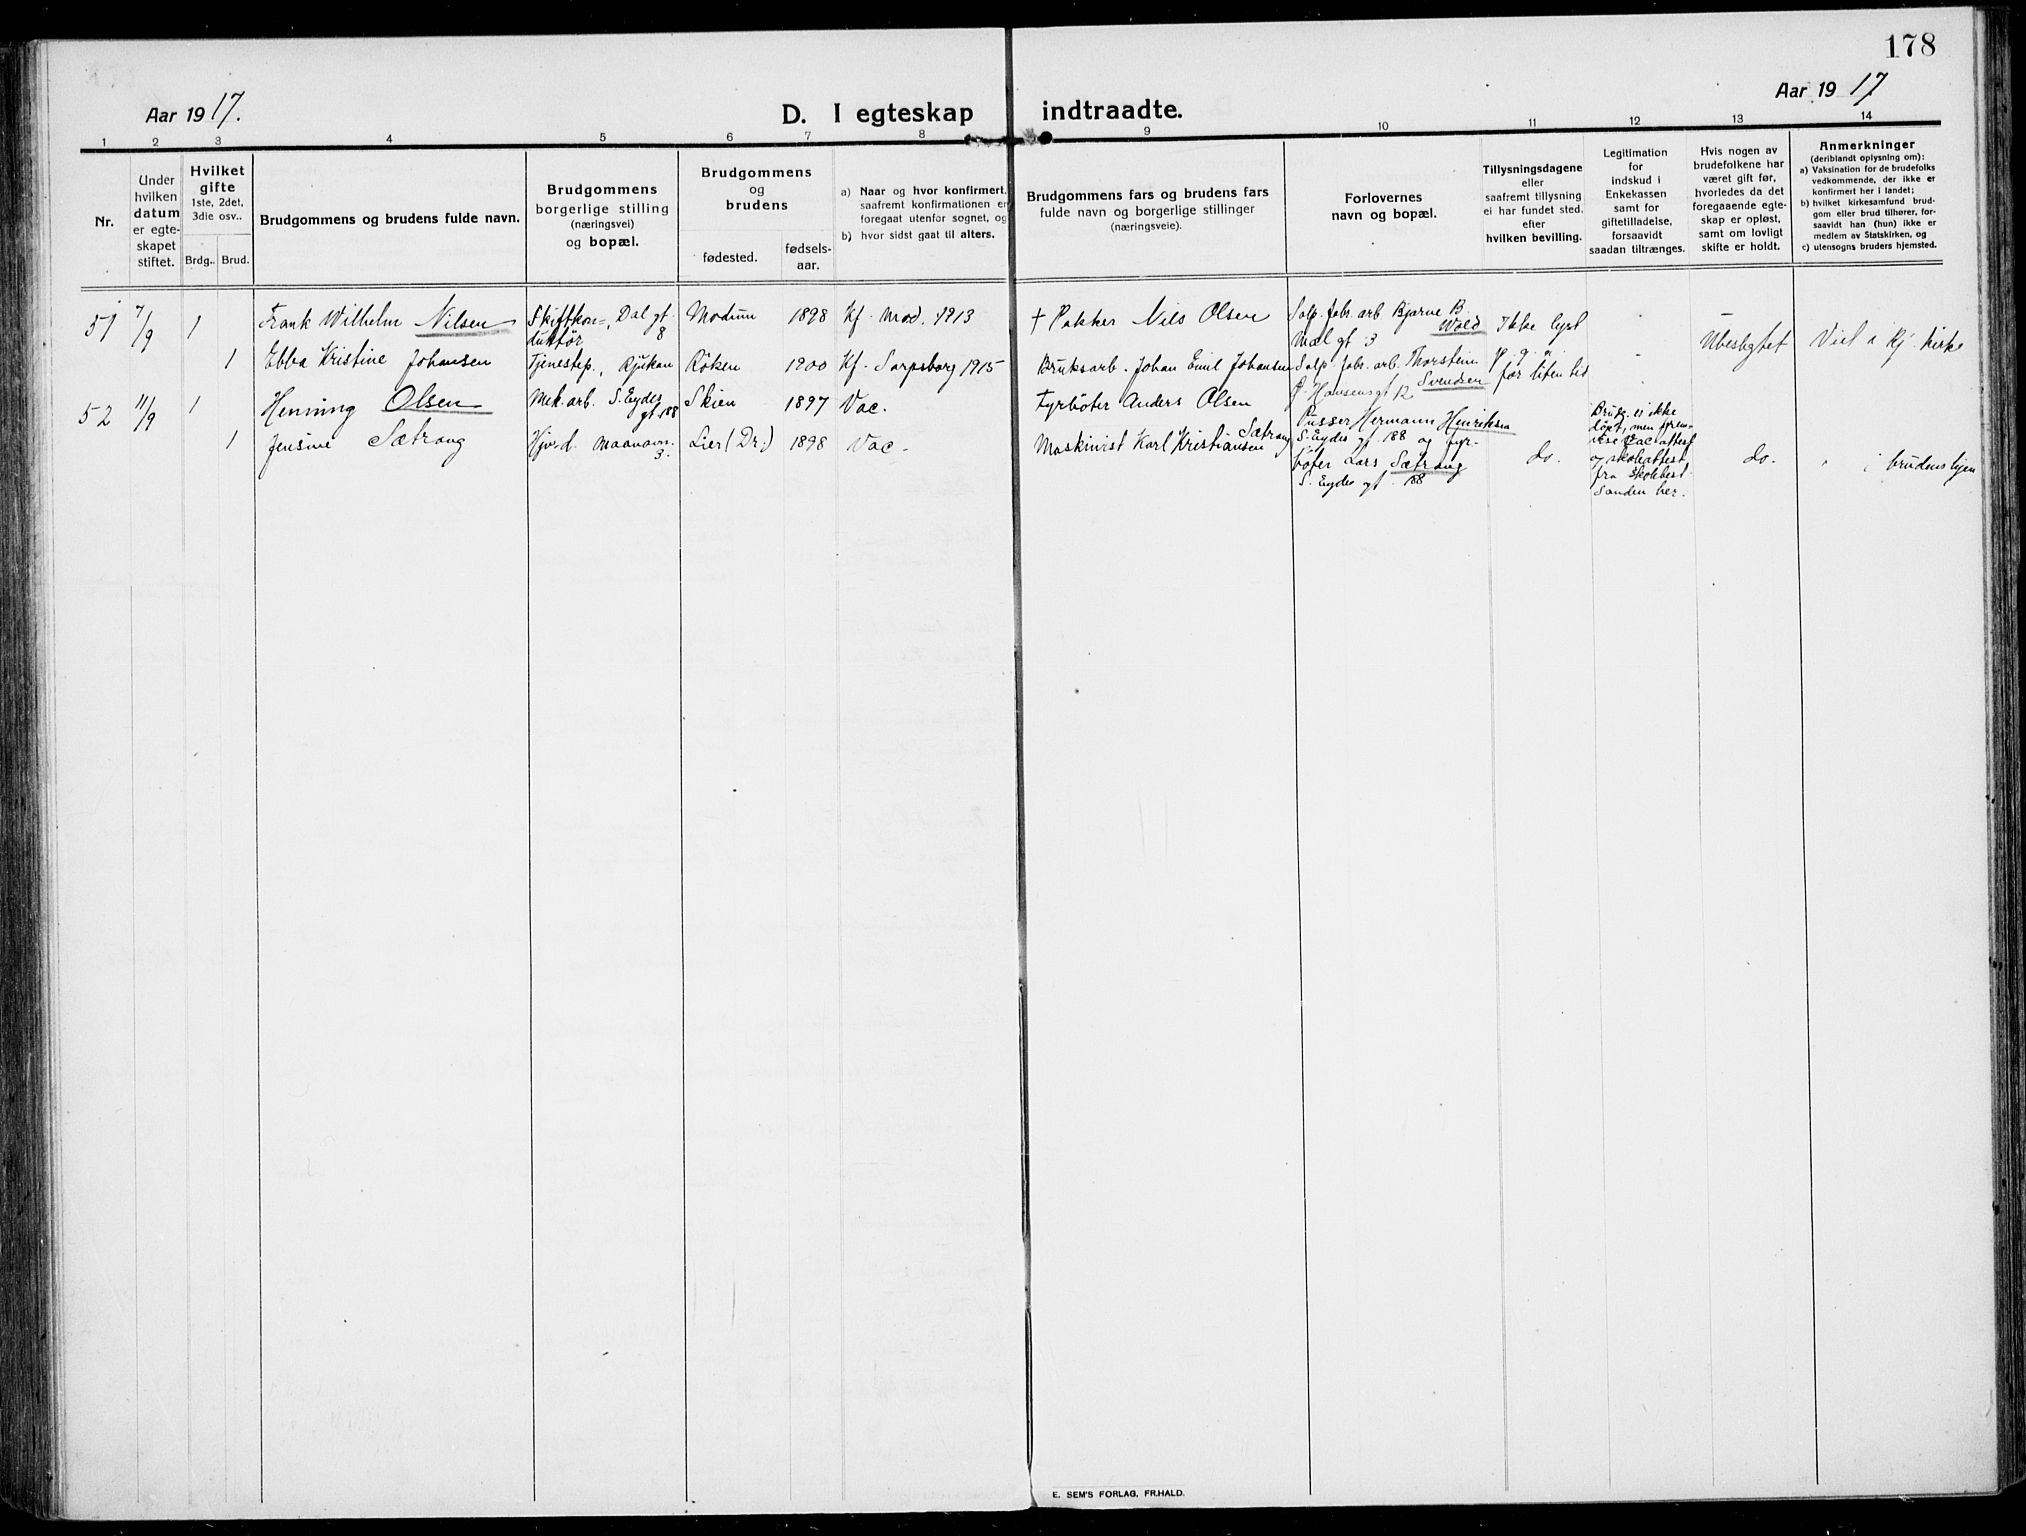 178
Aar 1917.
D. I egteskap indtraadte.
Aar 1917
1 2 3 4 5 6 7 8 9 10 11 12 13 14
Nr.
Under
hvilken
datum
er egte-
skapet
stiftet.
Hvilket
gifte
1ste, 2det,
3die osv..
Brdg.. Brud.
Brudgommens og brudens fulde navn.
Brudgommens
borgerlige stilling
(næringsvei)
og bopæl.
Brudgommens
og
brudens
fødested.
fødsels-
aar.
a) Naar og hvor konfirmert,
saafremt konfirmationen er
foregaat utenfor sognet, og
b) hvor sidst gaat til alters.
Brudgommens fars og brudens fars
fulde navn og borgerlige stillinger
(næringsveie).
Forlovernes
navn og bopæl.
Tillysningsdagene
eller
saafremt tillysning
ei har fundet sted.
efter
hvilken bevilling.
Legitimation
for
indskud i
Enkekassen
samt for
giftetilladelse,
forsaavidt
saadan tiltrænges.
Hvis nogen av
brudefolkene har
været gift før,
hvorledes da det
foregaaende egte-
skap er opløst,
samt om lovligt
skifte er holdt.
Anmerkninger
(deriblandt oplysning om):
a) Vaksination for de brudefolks
vedkommende, der ikke er
konfirmert her i landet;
b) hvilket kirkesamfund brud-
gom eller brud tilhører, for-
saavidt han (hun) ikke er
medlem av Statskirken, og
c) utensogns bruders hjemsted.
51 7/9 1 Frank Wilhelm Nilsen
Skiftkon=, Dal gt.
duktør 8
Modum 1898 Kf. Mod. 1913
† Pakker Nils Olsen
Salp. fabr. arb Bjarne B.
Wold
Mæl gt 3
Ikke lyst
p. g. a.
for liten tid
Ubeslegtet
Viet i Rj. kirke
1 Ebba Kristine Johansen
Tjenestep., Rjukan
Røken 1900 Kf. Sarpsborg 1915
Bruksarb. Johan Emil Johansen
Salp. fabr. arb. Thorstein
Svendsen
Hansensgt 12
52 11/9 1 Henning Olsen
Mek. arb. S. Eydes
gt. 188
Skien 1897 Vac.
Fyrbøter Anders Olsen
Pusser Hermann Henriksen
S. Eydes gt. 188 og fyr-
bøter Lars Sætrang
S. Eydes gt. 188
do.
Brudg. er ikke
døpt, men frem-
viste vac. attest
og skoleattest
fra skolebest.
Sanden her.
do.
" i brudens hjem
1 Jensine Sætrang
Hjv. d. Maanavn.
3.
Lier (Dr.) 1898 Vac.
Maskinist Karl Kristiansen
Sætrang
E. SEM'S FORLAG, FR.HALD.